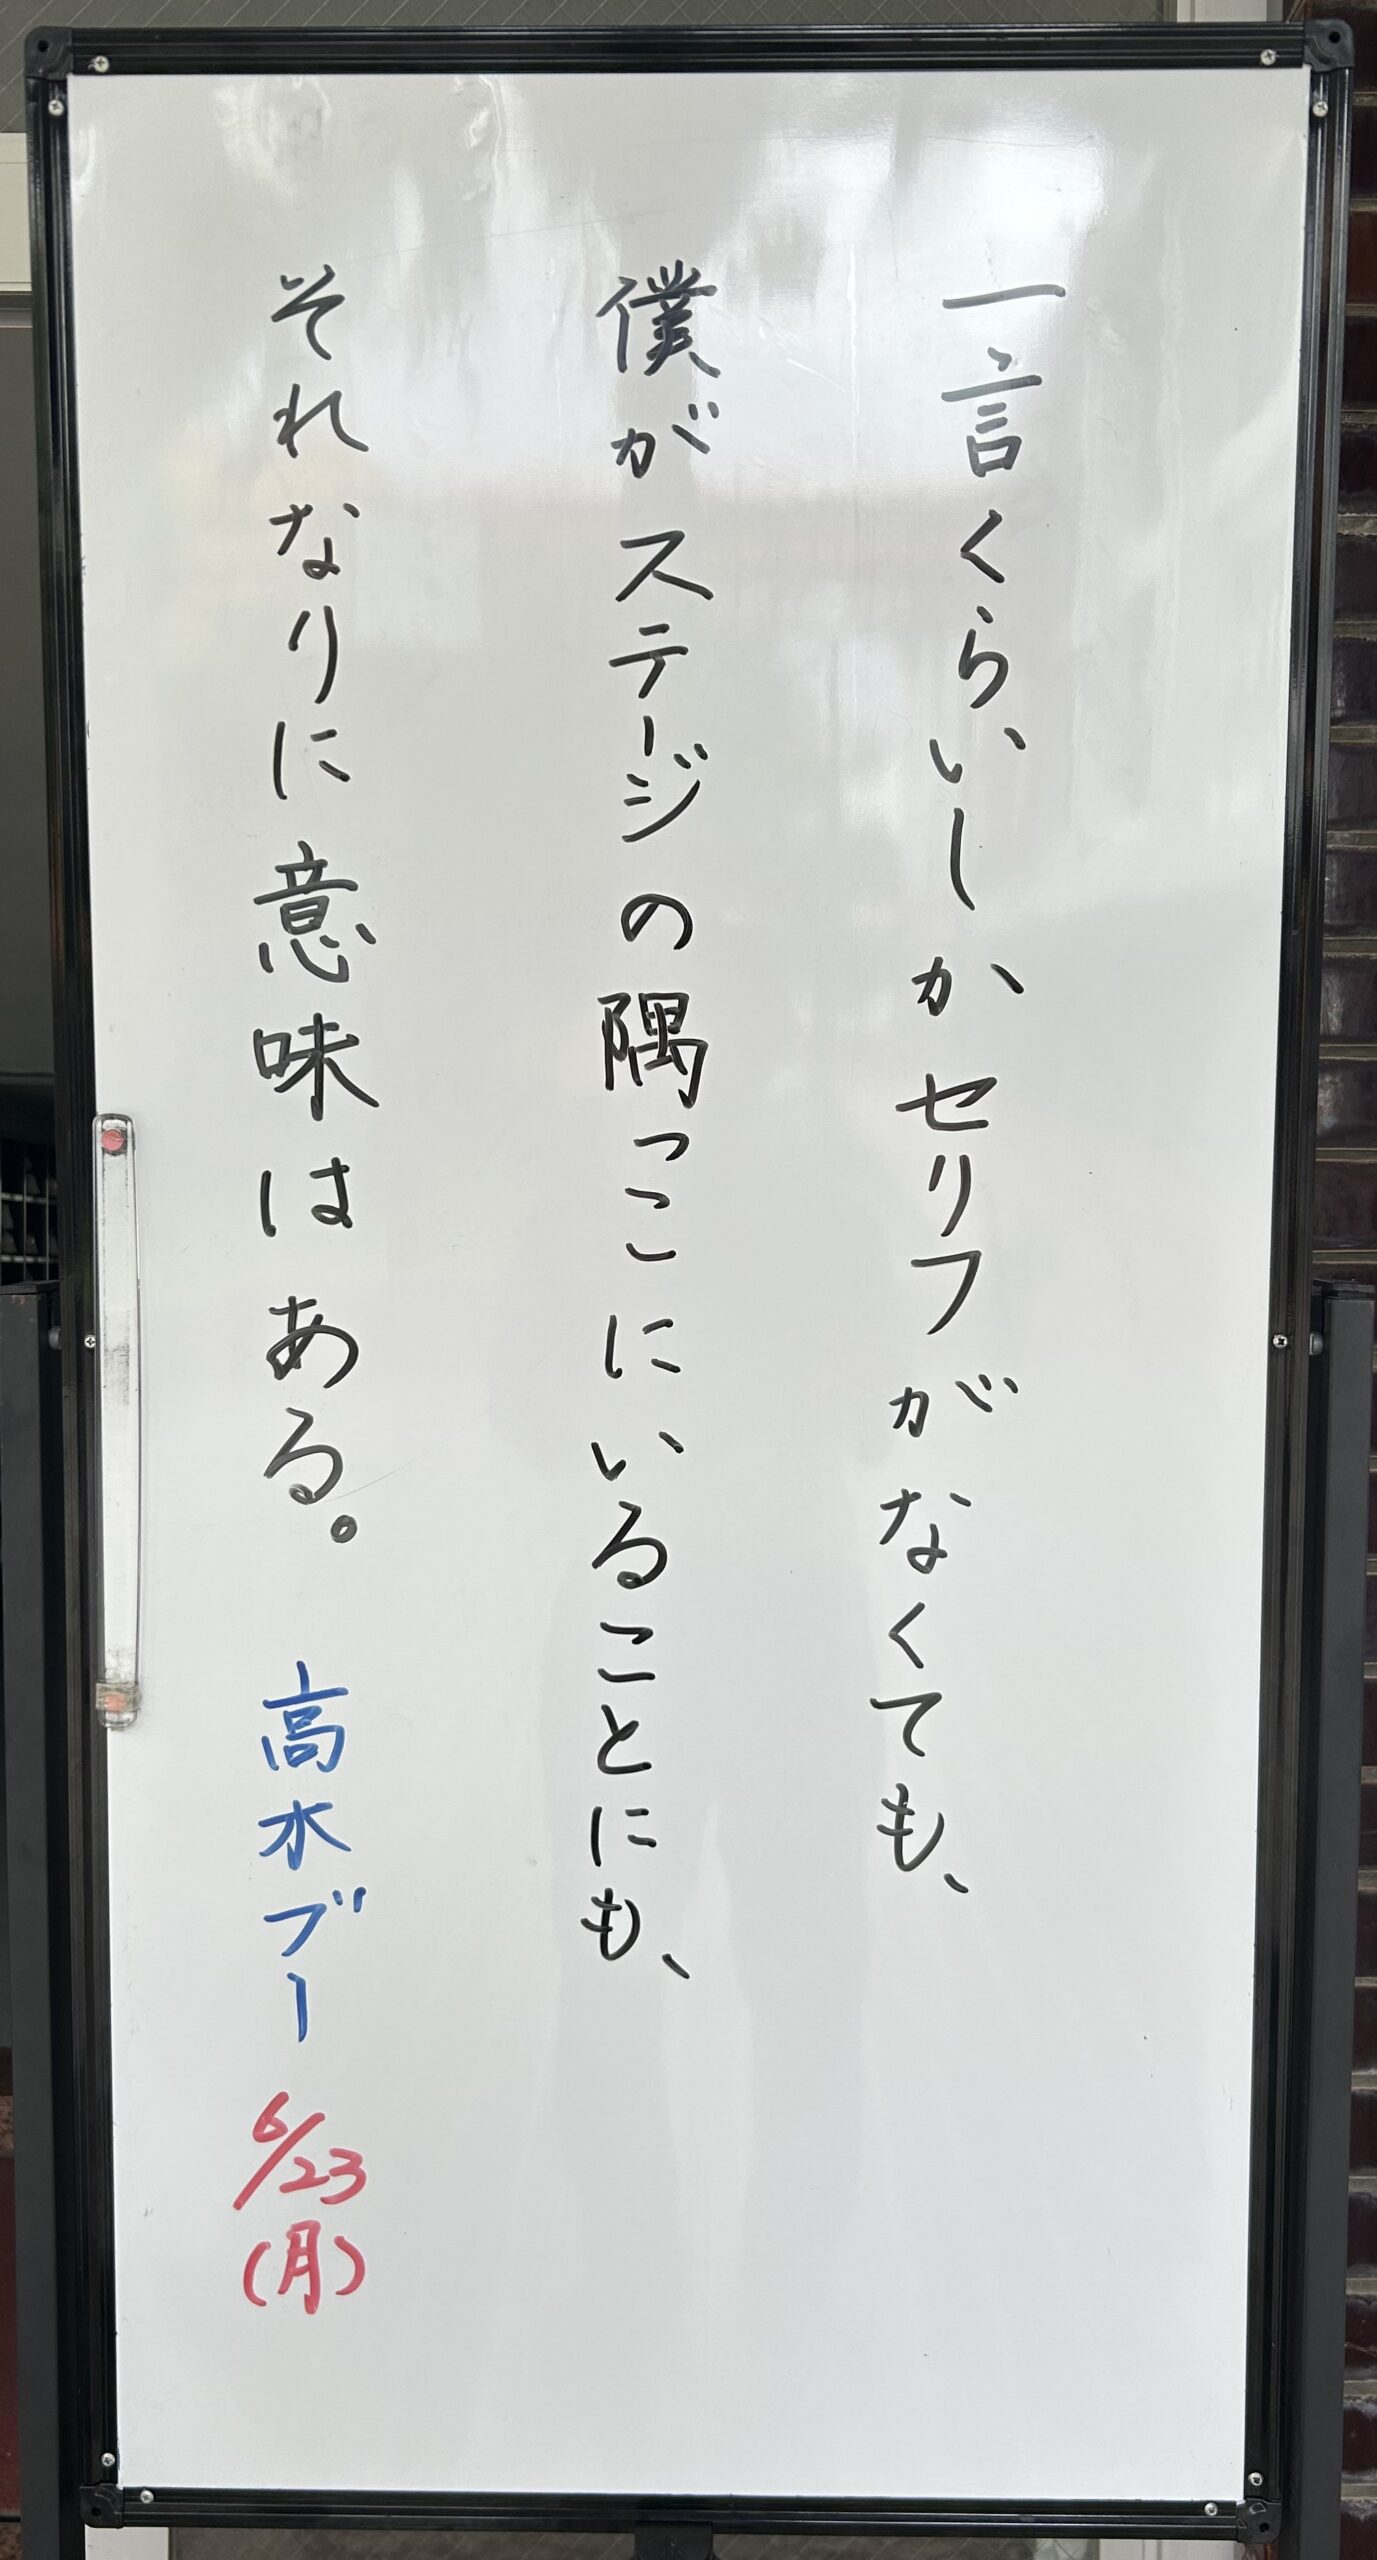 一言くらいしかセリフがなくても、
僕がステージの隅っこにいることにも、
それなりに意味はある。 高木ブー 6/23(月)